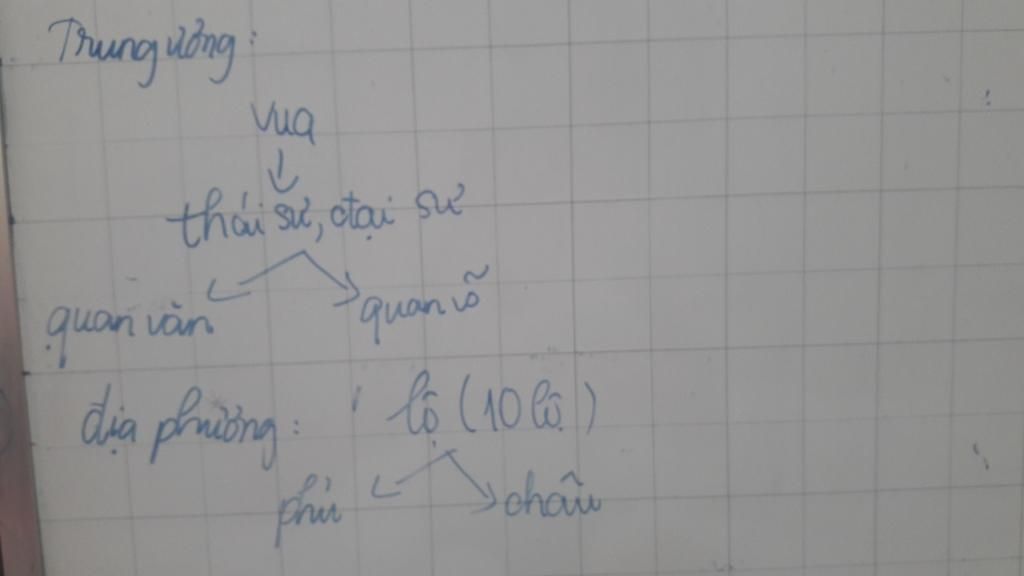 Trung ương:
Vua
thái sư, đại sư
quan văn quan võ
địa phương: lộ (10 lộ)
phủ châu